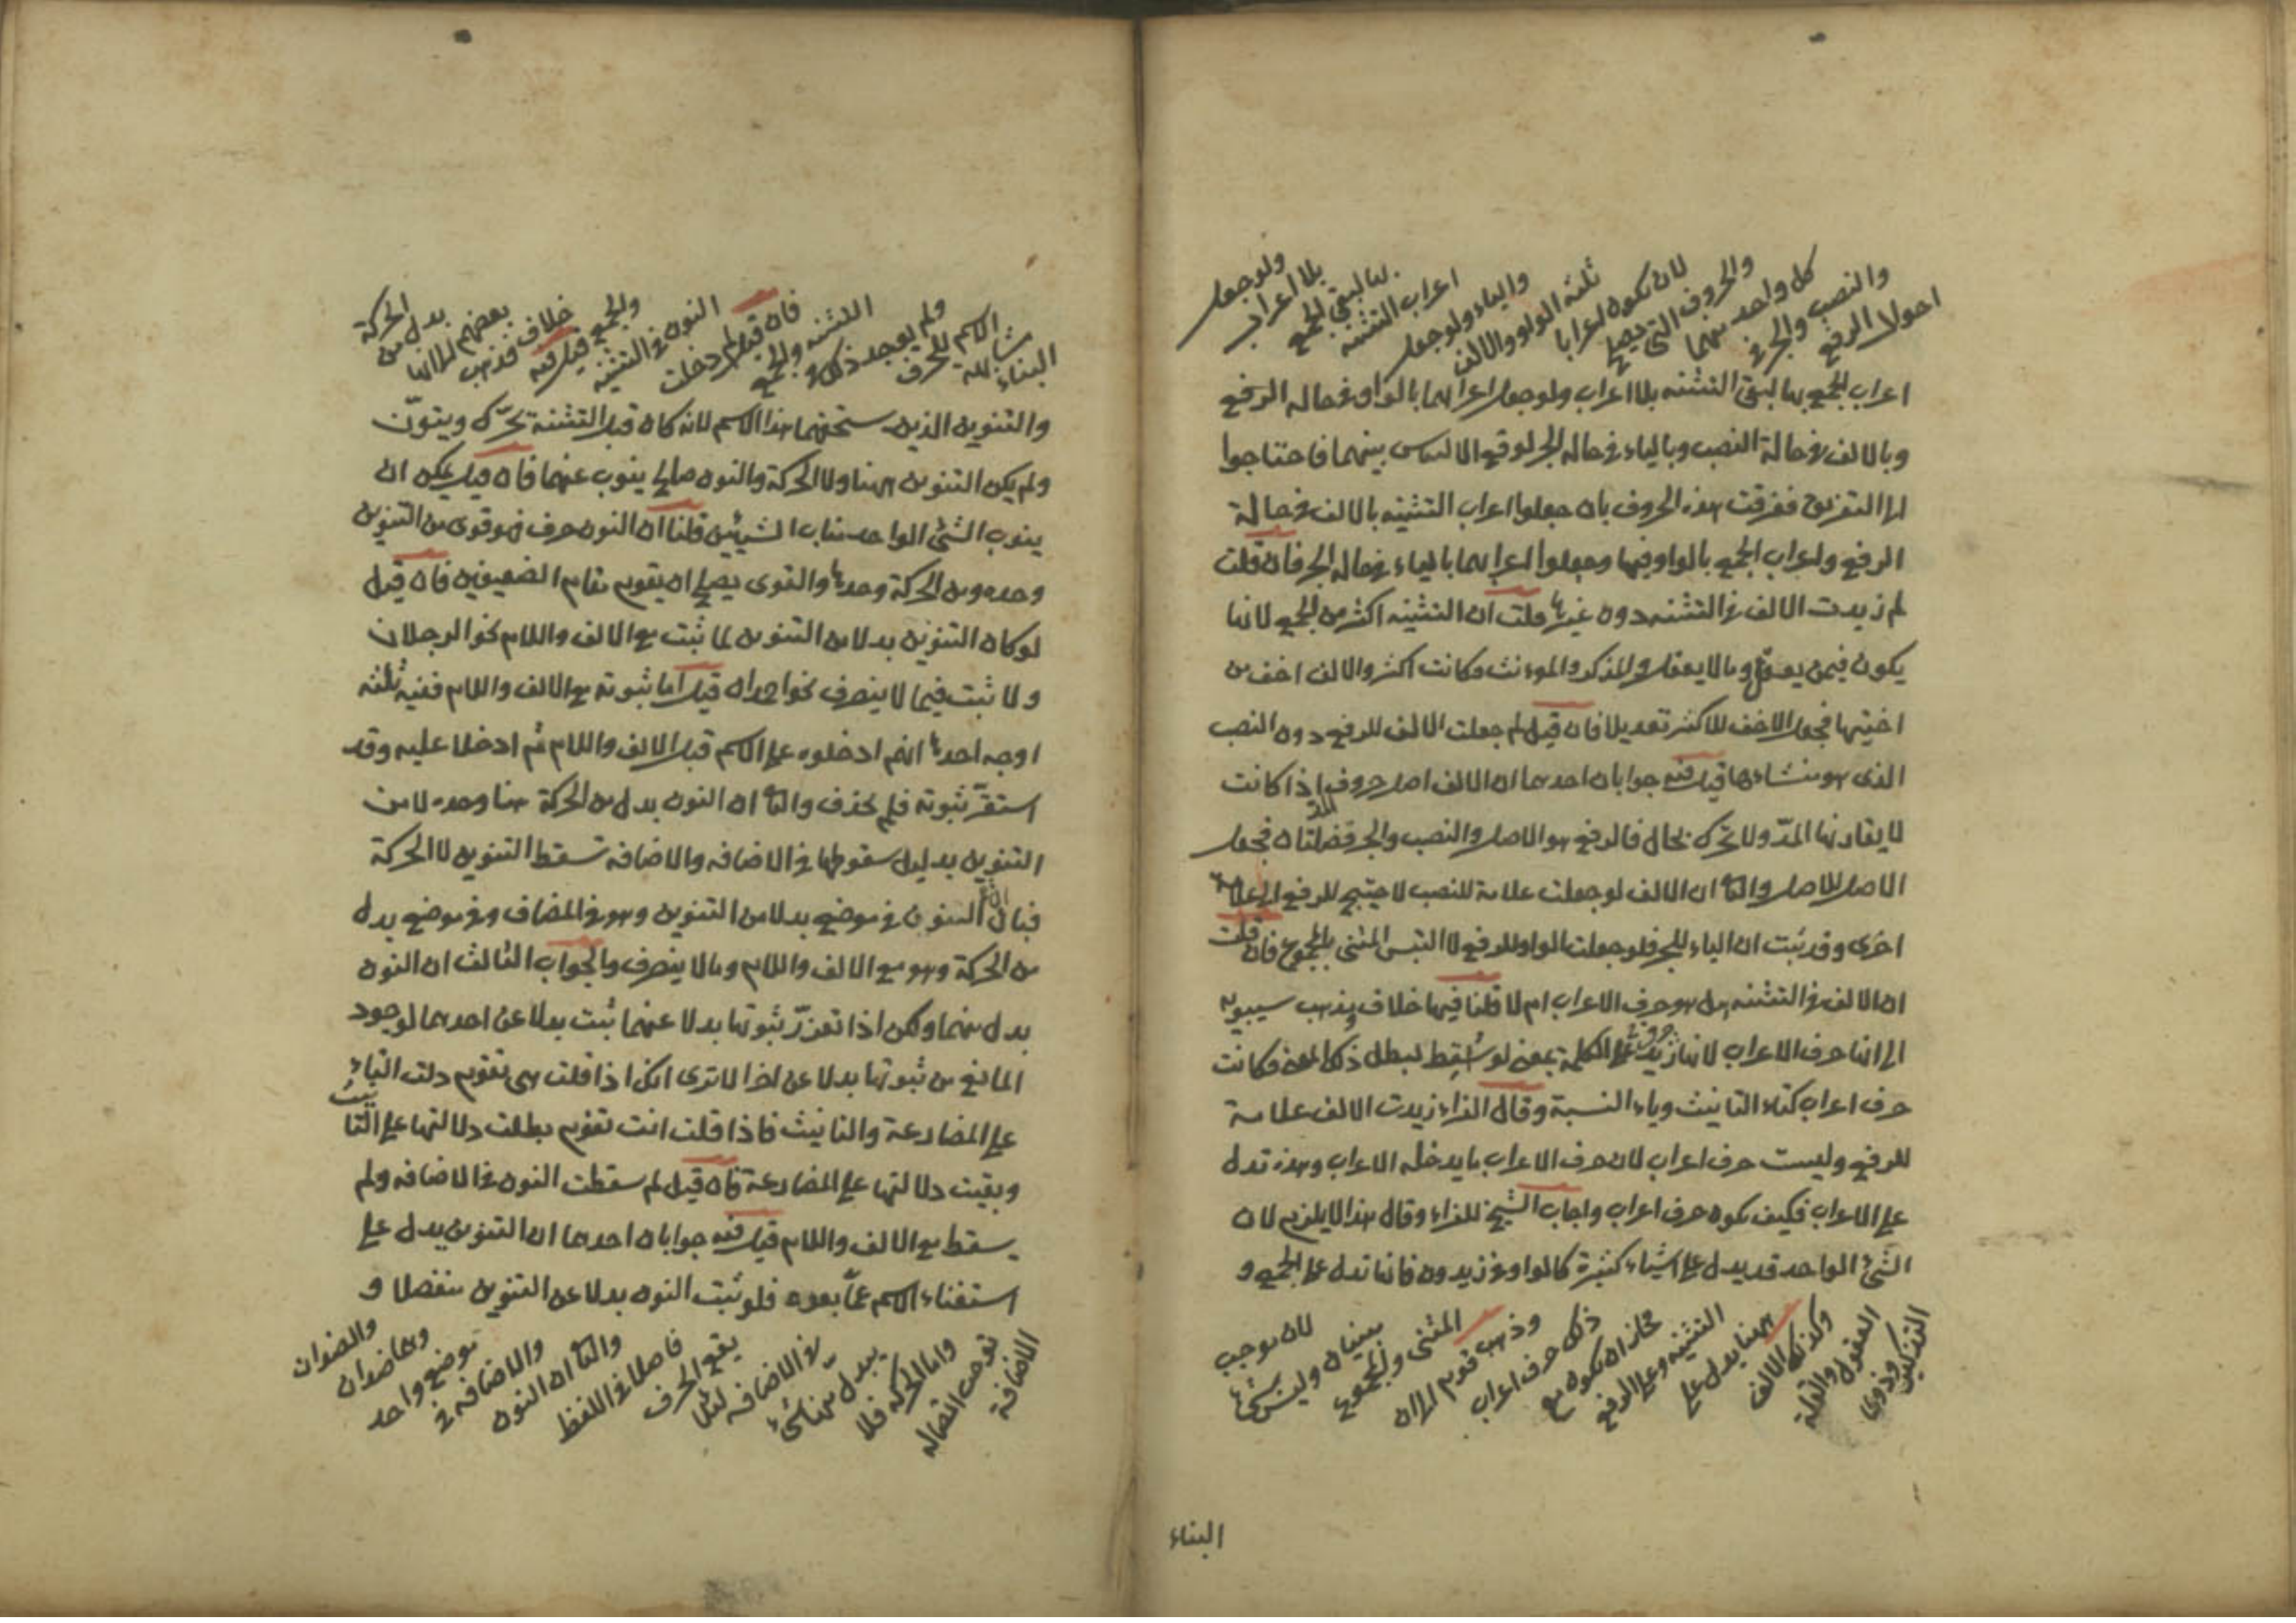 احوال الرفع
والنصب والجر في
كل واحد منهما
والحروف التي تصلح
لان تكون اعرابا
ثلثة الواو والالف
والياء ولو جعل
اعراب التثنية
بها لبقي الجمع
بلا اعراب
ولو جعل
اعراب الجمع بها لبقي التثنية بلا اعراب ولو جعل اعرابهما بالواو في حالة الرفع
وبالالف في حالة النصب وبالياء في حالة الجر لوقع الالتباس بينهما فاحتاجوا
الى التفريق ففرقت هذه الحروف بان جعلوا اعراب التثنية بالالف في حالة
الرفع واعراب الجمع بالواو فيها وجعلوا اعرابهما بالياء في حالة الجر فان قلت
لم زيدت الالف في التثنية دون غيرها قلت ان التثنية اكثر من الجمع لانها
يكون فيمن يعقل وما لا يعقل والمذكر والمؤنث فكانت اكثر والالف اخف من
اختيها فجعل الاخف للاكثر تعديلا فان قيل لم جعلت الالف للرفع دون النصب
الذي هو منشاءها قيل فيه جوابان احدهما ان الالف اصل حروف المد اذا كانت
لا يفارقها المدّ ولا تحرك بحال فالرفع هو الاصل والنصب والجر فضلتان فجعل
الاصل للاصل والثا ان الالف لو جعلت علامة للنصب لاحتيج للرفع الى علامة
اخرى وقد ثبت ان الياء للجر فلو جعلت الواو للرفع لالتبس المثنى بالمجموع فان قلت
ان الالف في التثنية هل هو حرف الاعراب ام لا قلنا فيها خلاف فذهب سيبويه
الى انها حرف الاعراب لانها زيدت على الكلمة بمعنى لو سقط لبطل ذلك المعنى فكانت
حرف اعراب كتاء التانيث وياء النسبة وقال الفراء زيدت الالف علامة
للرفع وليست حرف اعراب لان حرف الاعراب ما يدخله الاعراب وهذه تدل
على الاعراب فكيف يكون حرف اعراب واجاب الشيخ للفراء وقال هذا لا يلزم لان
الشئ الواحد قد يدل على اشياء كثيرة كالواو في زيدون فانها تدل على الجمع و
التذكير
وذوي
العقول والقلة
وكذلك الالف
ههنا يدل على
التثنية وعلى الرفع
فجاز ان يكون مع
ذلك حرف اعراب
وذهب قوم الى ان
المثنى والمجموع
مبنيان وليس بشئ
لان موجب
البناء
البناء
مشابهة
الاسم للحرف
ولم يوجد ذلك في
التثنية والجمع
فان قيل لم دخلت
النون في التثنية
والجمع قيل فيه
خلاف فذهب
بعضهم الى انها
بدل من
الحركة
والتنوين الذين يستحقهما هذا الاسم لانه كان قبل التثنية تحرّك وينوّن
ولم يكن التنوين ههنا ولا الحركة والنون صالح ينوب عنهما فان قيل يمكن ان
ينوب الشئ الواحد مناب الشيئين قلنا ان النون حرف فهو قوى من التنوين
وحده ومن الحركة وحدها والقوى يصلح ان يقوم مقام الضعيفين فان قيل
لو كان التنوين بدلا من التنوين لما ثبت مع الالف واللام نحو الرجلان
ولا ثبت فيما لا ينصرف نحو احمدان قيل اما ثبوته مع الالف واللام ففيه ثلثة
اوجه احدها انهم ادخلوه على الاسم قبل الالف واللام ثم ادخلا عليه وقد
استقرّ ثبوته فلم يحذف والثا ان النون بدل من الحركة هنا وحده لا من
التنوين بدليل سقوطها في الاضافة والاضافة تسقط التنوين لا الحركة
فبان ان النون في موضع بدلا من التنوين وهو في المضاف وفي موضع بدل
من الحركة وهو مع الالف واللام وما لا ينصرف والجواب الثالث ان النون
بدل منهما ولكن اذا تعزرّ ثبوتها بدلا عنهما ثبت بدلا عن احدهما لوجود
المانع من ثبوتها بدلا عن اخر الا ترى انك اذا قلت هي تقوم دلت التاء
على المضارعة والتانيث فاذا قلت انت تقوم بطلت دلالتها على التانيث
وبقيت دلالتها على المضارعة فان قيل لم سقطت النون في الاضافة ولم
يسقط مع الالف واللام قيل فيه جوابان احدهما ان التنوين يدل على
استغناء الاسم عمّا بعده فلو ثبت النون بدلا عن التنوين منفصلا و
الاضافة
توجب اتصاله
واما الحركة فلا
يبدل منها شئ
في الاضافة لئلا
يقع الحرف
فاصلا في اللفظ
والثا ان النون
والاضافة في
موضع واحد
وهما ضدان
والضدان